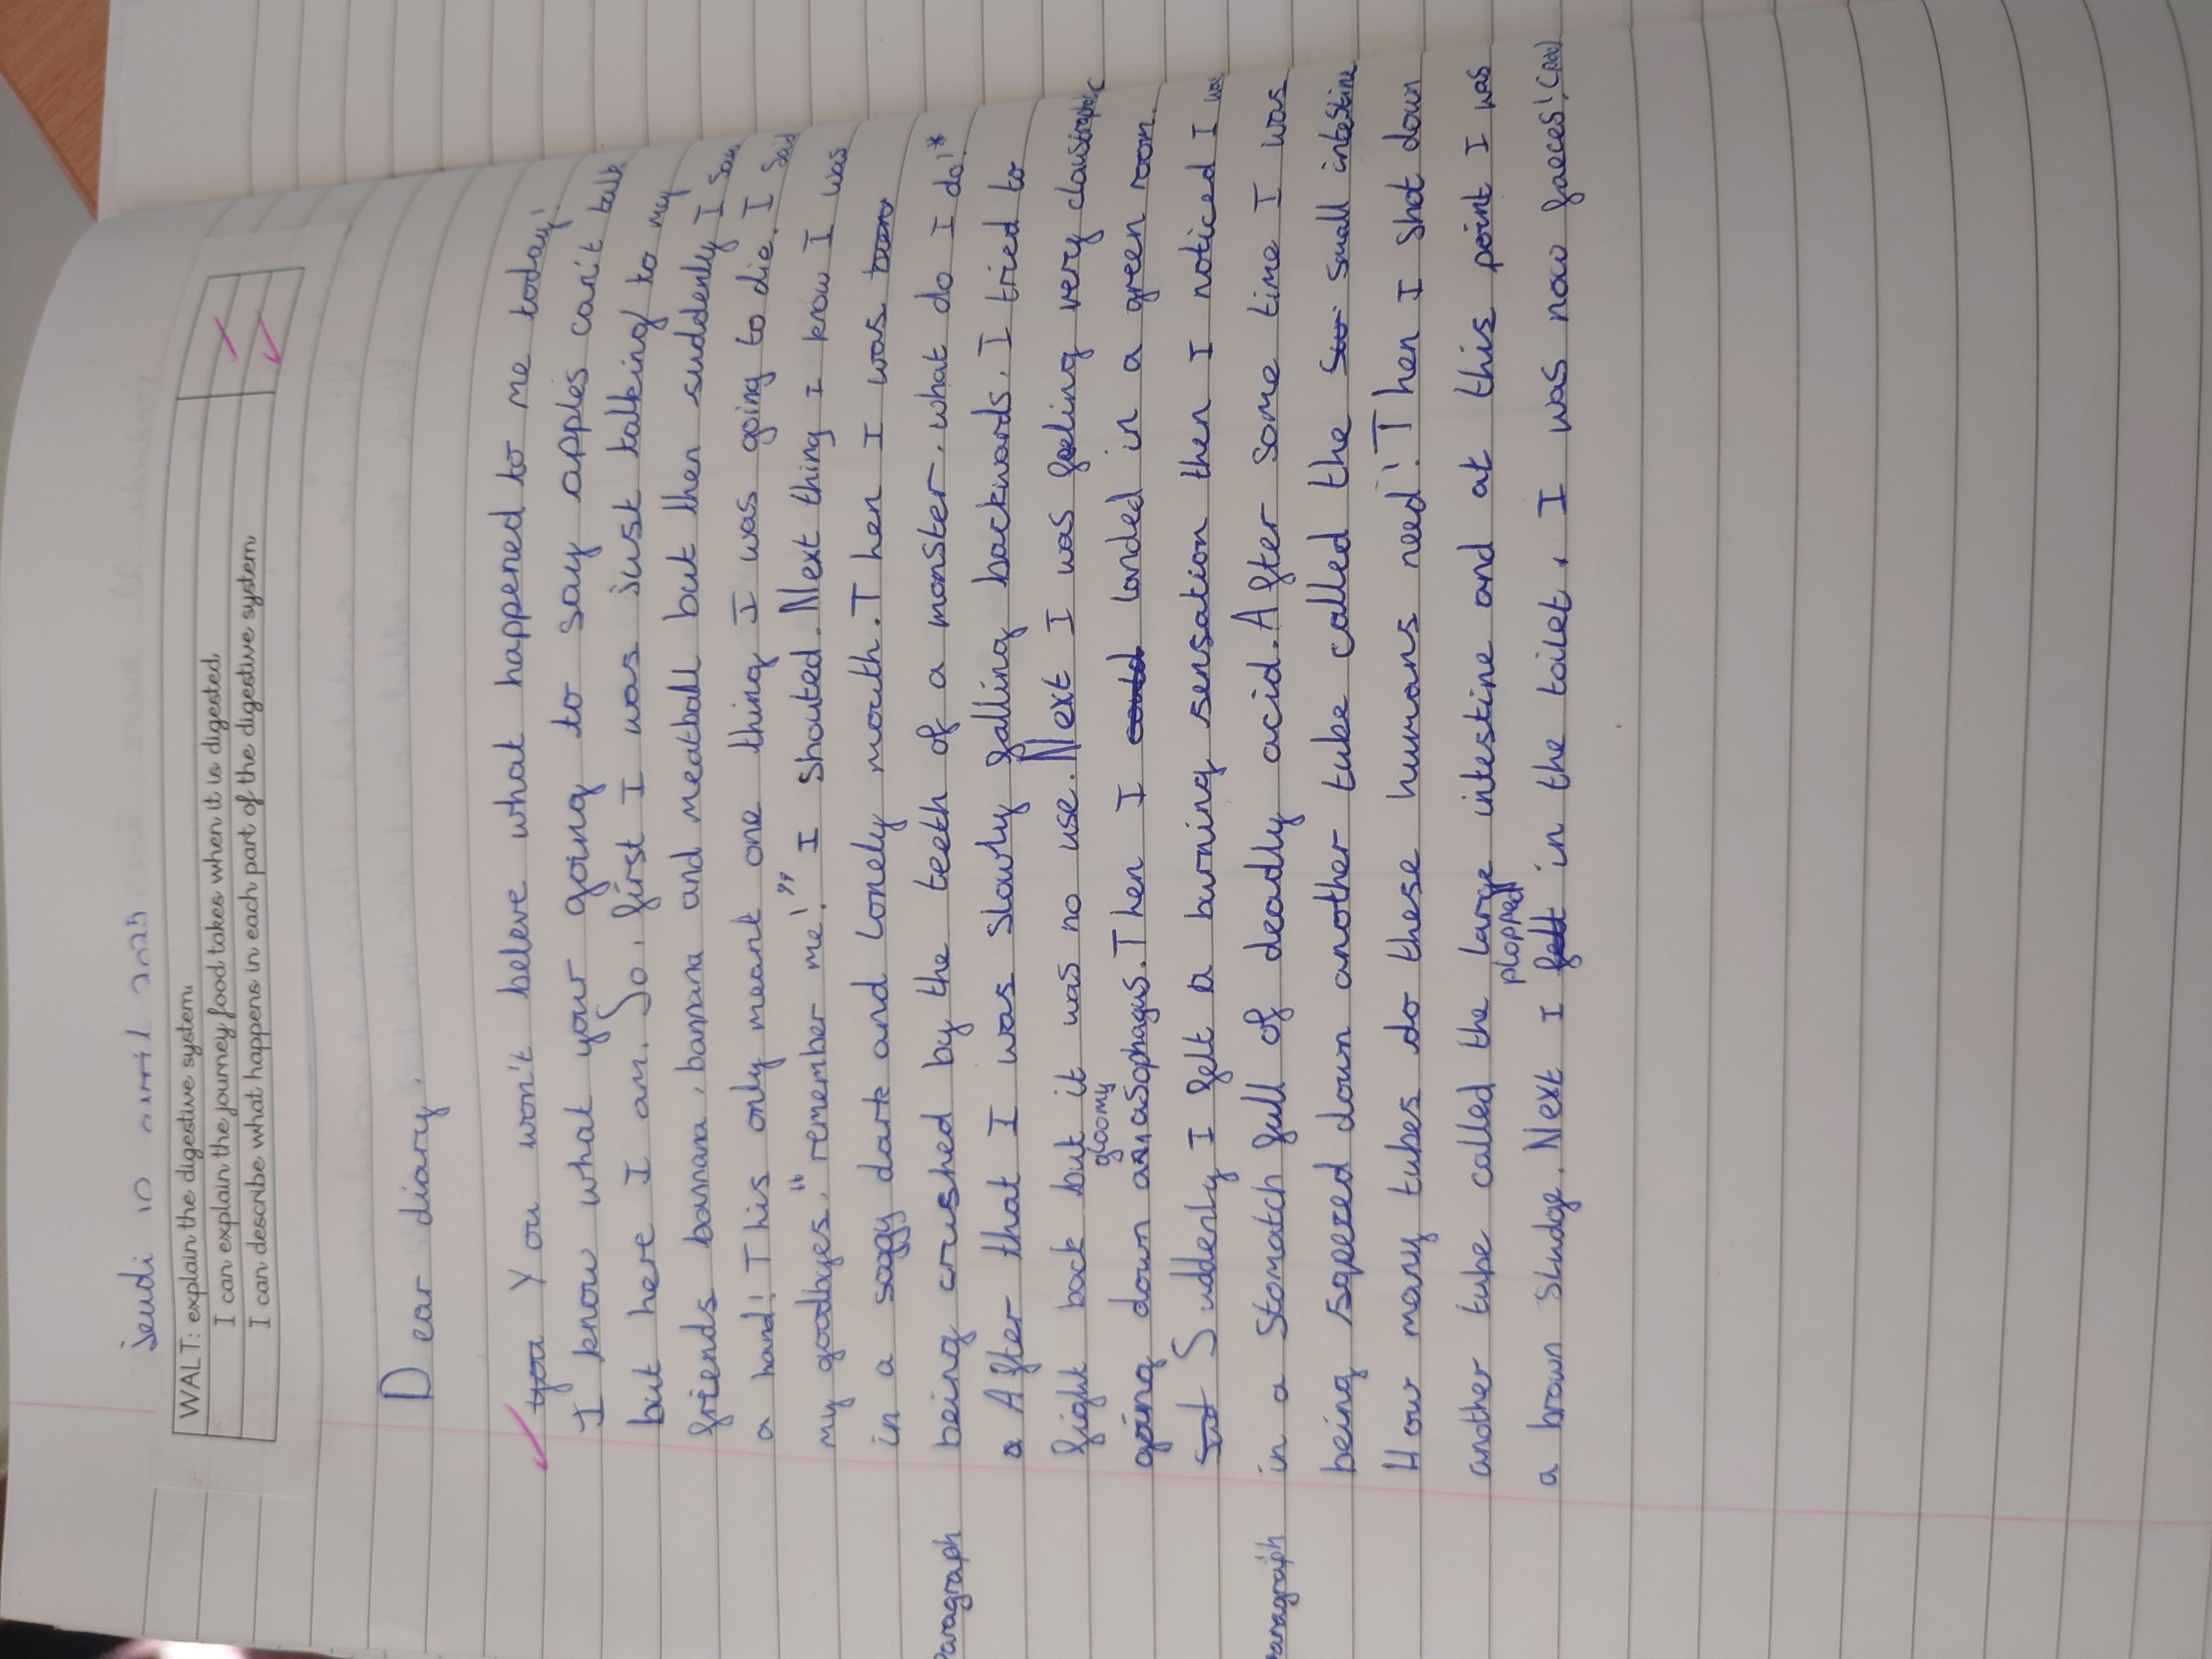 jeudi 10 avril 2025
WALT: explain the digestive system.
I can explain the journey food takes when it is digested
I can describe what happens in each part of the digestive system
Dear diary,
you You won't beleve what happened to me today!
I know what your going to say apples can't talk
but here I am. So, first I was just talking to my
friends bannana, bannana and meatball but then suddenly I saw
a hand! This only meant one thing I was going to die. I said
my goodbyes, "remember me!" I shouted. Next thing I know I was
in a soggy dark and lonely mouth. Then I was
Paragraph being crushed by the teeth of a monster. what do I do!*
a After that I was slowly falling backwards. I tried to
fight back but it was no use. Next I was feeling very claustraphobic
gloomy
going down a asophagus. Then I could landed in a green room.
Sud Suddenly I felt a burning sensation then I noticed I was
in a Stomatch full of deadly acid. After some time I was
Paragraph
being sqeezed down another tube called the sm small intestine
How many tubes do these humans need! Then I shot down
another tube called the large intestine and at this point I was
plopped
a brown sludge. Next I fell in the toilet, I was now faeces! (poo)